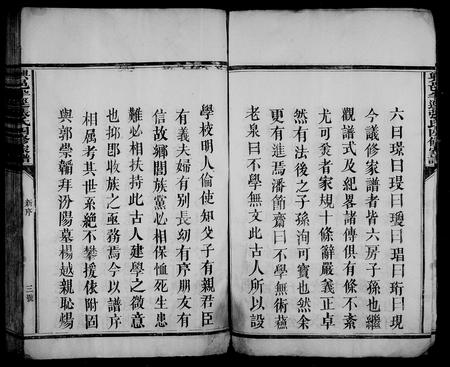 六曰璟曰璦曰瓊曰琩曰珩曰現
今議修家譜者皆六房子孫也繼
觀譜式及紀畧諸傳俱有條不紊
尤可羙者家規十條辭嚴義正卓
然有法後之子孫洵可寳也然余
更有進焉潘節齋曰不學無術蘓
老泉曰不學無文此古人所以設
學校明人倫使知父子有親君臣
有義夫婦有别長幼有序朋友有
信故鄉閭族黨必相保恤死生患
難必相扶持此古人建學之微意
也抑卽收族之亟務焉今以譜序
相属考其世系絶不攀援依附固
與郭崇韜拜汾陽墓楊越親恥煬
新序
三號